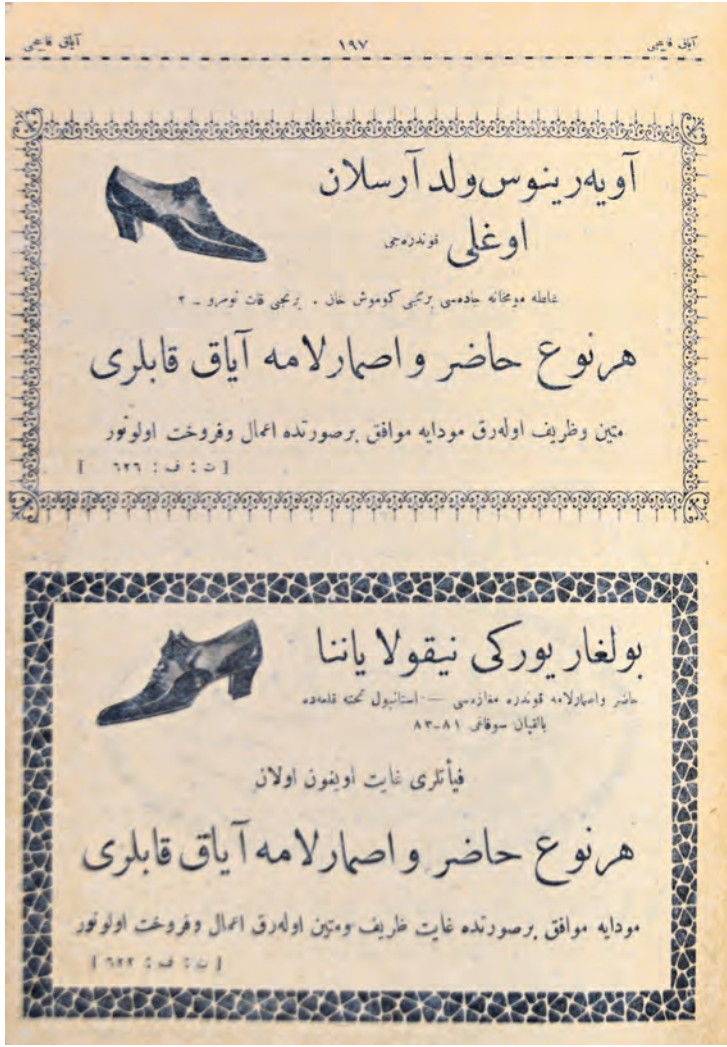 آیاق قابجی ١٩٧ آیاق قابجی
آویه‌رینوس ولد آرسلان
اوغلی قوندره‌جی
غلطه مومخانه جاده‌سی برنجی کوموش خان . برنجی قات نومرو ـ ٢
هرنوع حاضر واصمارلامه آیاق قابلری
متین وظریف اوله‌رق مودایه موافق برصورتده اعمال وفروخت اولونور
[ ت : ف : ٦٢٦ ]
بولغار یورکی نیقولا یاننا
حاضر واصمارلامه قوندره مغازه‌سی — استانبول تخته قلعه‌ده
بالقپان سوقاغی ٨١ـ٨٣
فیأتلری غایت اویغون اولان
هرنوع حاضر واصمارلامه آیاق قابلری
مودایه موافق برصورتده غایت ظریف ومتین اوله‌رق اعمال وفروخت اولونور
[ ت : ف : ٦٢٢ ]